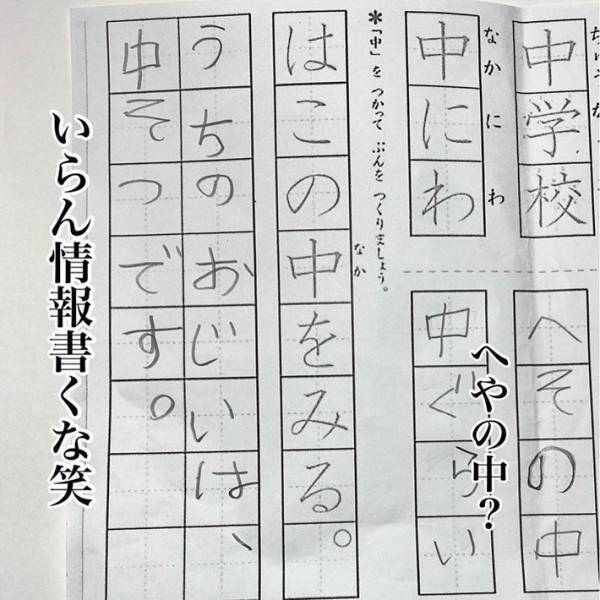 中学校
へその中
へやの中?
なかにわ
中にわ
中ぐらい
*「中」を つかって ぶんを つくりましょう。
なか
はこの中をみる。
うちのおじいは、
中そつです。
いらん情報書くな笑